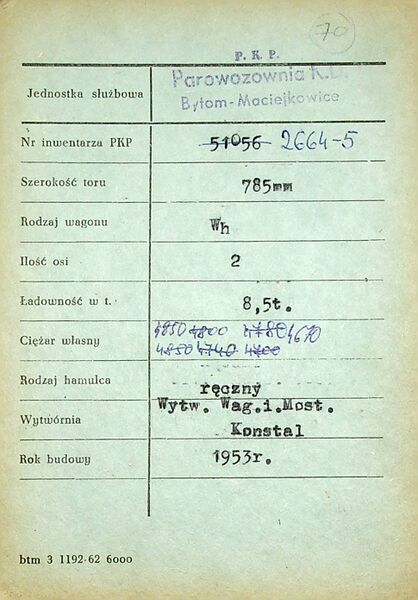 70
P. K. P.
Jednostka służbowa
Parowozownia K.D.
Bytom-Maciejkowice
Nr inwentarza PKP 51056 2664-5
Szerokość toru 785mm
Rodzaj wagonu Wh
Ilość osi 2
Ładowność w t. 8,5t.
4850 4800 4780 4670
Ciężar własny
4850 4740 4700
Rodzaj hamulca ręczny
Wytw. Wag.i.Most.
Wytwórnia
Konstal
Rok budowy 1953r.
btm 3 1192-62 6000